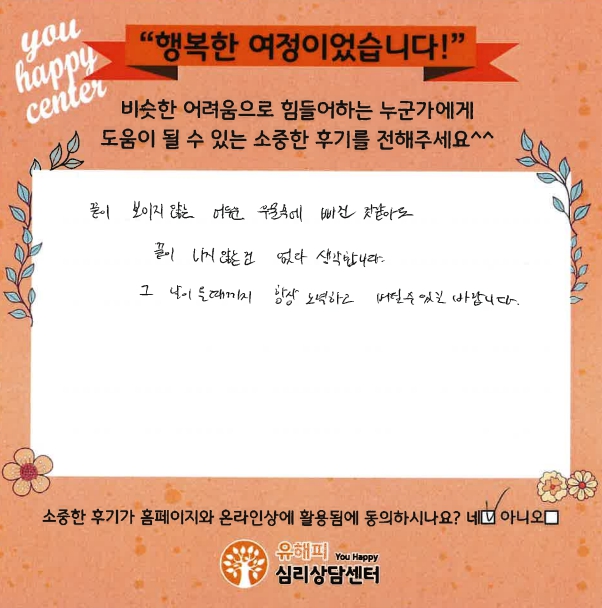 you
happy
center
“행복한 여정이었습니다!”
비슷한 어려움으로 힘들어하는 누군가에게
도움이 될 수 있는 소중한 후기를 전해주세요^^
끝이 보이지 않는 어두운 우물속에 빠진 것같아도
끝이 나지 않는건 없다 생각합니다.
그 날이 올때까지 항상 노력하고 버틸수있길 바랍니다.
소중한 후기가 홈페이지와 온라인상에 활용됨에 동의하시나요? 네☑ 아니오☐
유해피 You Happy
심리상담센터